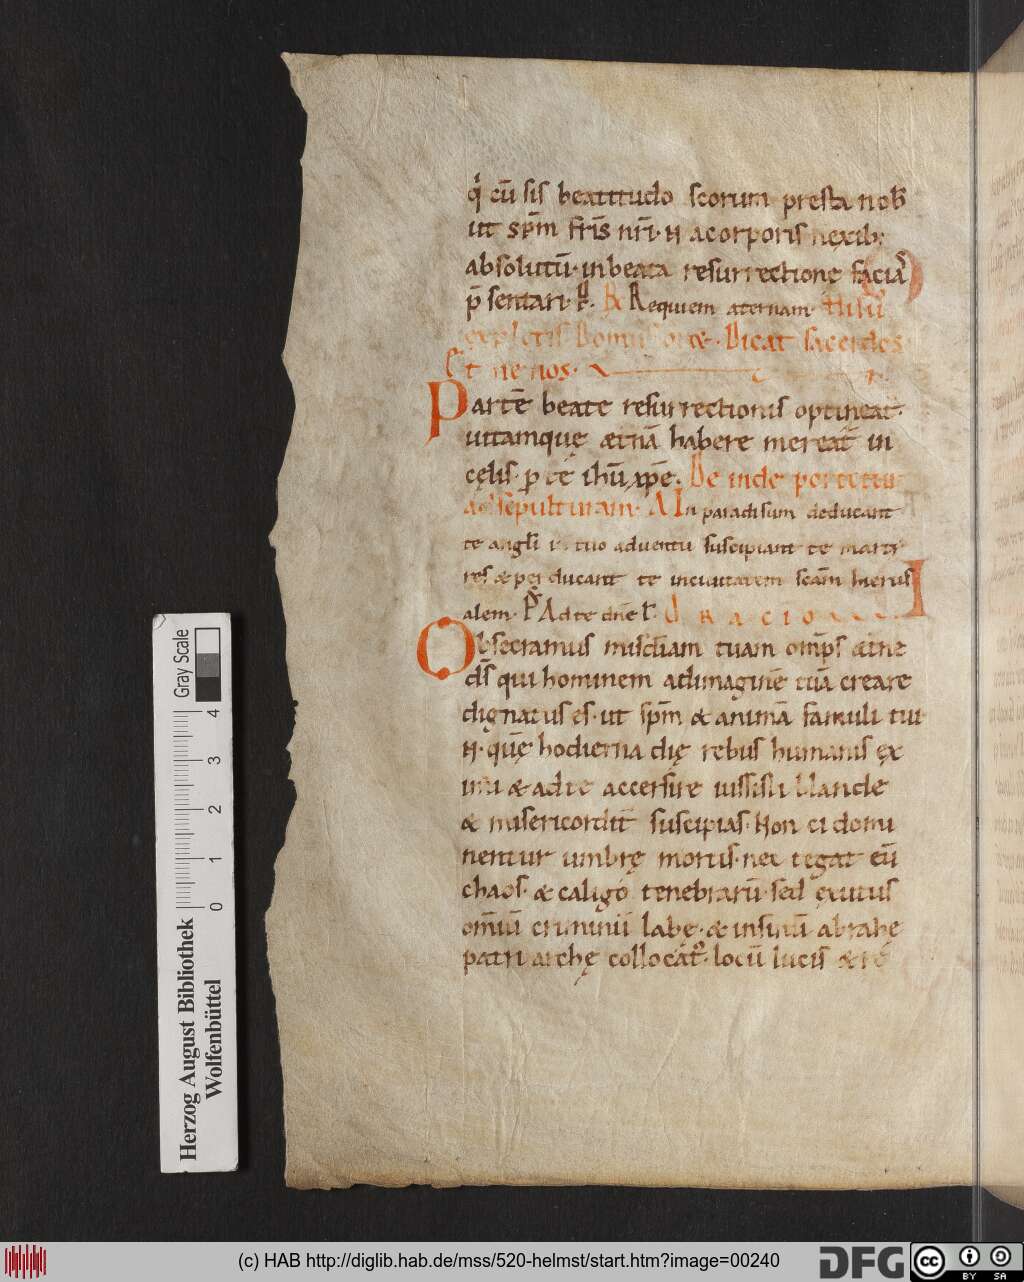 q̇ cū sis beatitudo scorum presta nob̄
ut sp̄m fr̄is nr̄i · N a corporis nexib;
absolutū · in beata resurrectione faciaſ
p̄sentari · ꝑ. R Requiem aeternam
expletis Domus orat. Dicat sacerdos
Et ne nos.
Partē beate resurrectionis optineat
uitamquę æt̄nā habere mereat̄ in
cęlis · p te ih̄u xp̄e. De inde portetur
ad sepulturam. A In paradisum deducant
te angl̄i in tuo aduentu suscipiant te marti
res & perducant te in ciuitatem sc̄am hierus
alem. Ps̄ Ad te dn̄e l. ORACIO
Obsecramus misc̄diam tuam om̄ps æt̄ne
ds̄ qui hominem ad imaginē tuā creare
dignatus es · ut sp̄m & animā famuli tui
N · quę̄ hodierna dię rebus humanis ex
imi & ad te accersire iussisti blande
& misericordit̄ suscipias. Non ei domi
nentur umbrę mortis · nec tegat eū
chaos · & caligo tenebrarū · sed exutus
om̄iū criminū labe · & in sinū abrahe
patriarchę collocat · locū lucis & re
Herzog August Bibliothek
Wolfenbüttel
0 1 2 3 4
Gray Scale
(c) HAB http://diglib.hab.de/mss/520-helmst/start.htm?image=00240
DFG
cc BY SA